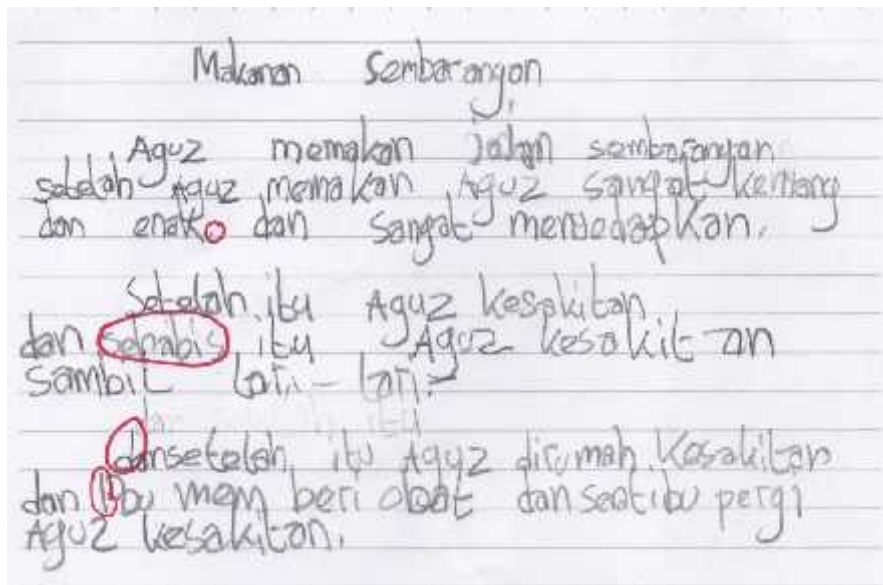 Makanan Sembarangan
Aguz memakan jalan sembarangan
setelah Aguz memakan Aguz sangat kentang
dan enak. dan sangat mensedapkan.
Setelah itu Aguz kesakitan
dan sehabis itu Aguz kesakitan
sambil lari-lari
dan setelah itu
dansetelah itu Aguz dirumah kesakitan
dan Ibu mem beri obat dan seatibu pergi
Aguz kesakitan.